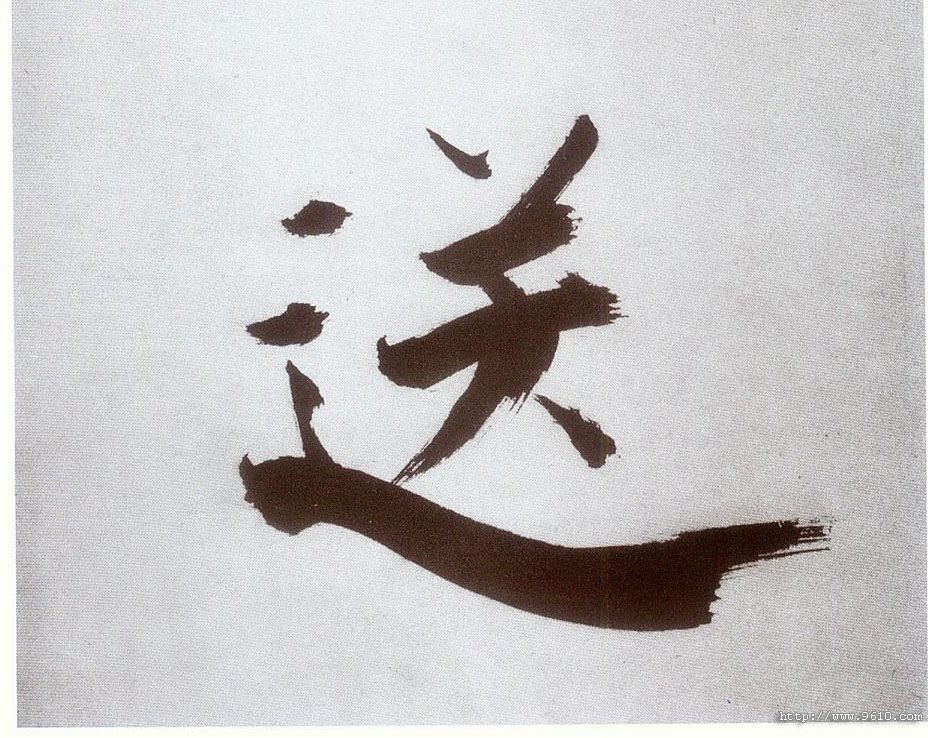 送
http://www.9610.com